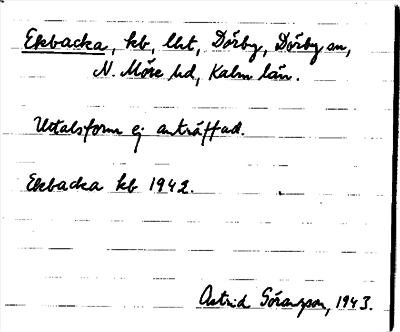 Ekbacka, kb, lht, Dörby, Dörby sn,
N. Möre hd, Kalm län.
Uttalsform ej anträffad.
Ekbacka kb 1942.
Astrid Göransson, 1943.